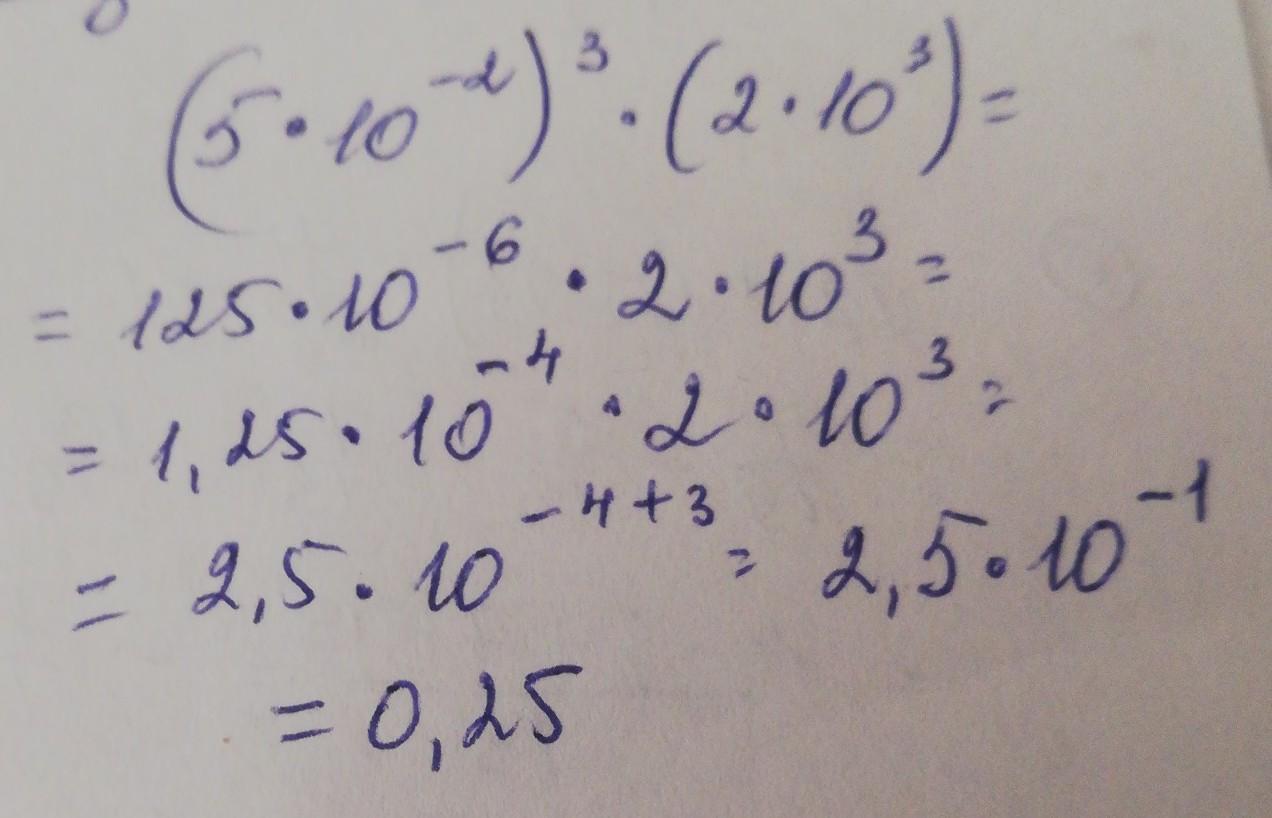 (5·10⁻²)³·(2·10³)=
= 125·10⁻⁶·2·10³=
= 1,25·10⁻⁴·2·10³=
= 2,5·10⁻⁴⁺³= 2,5·10⁻¹
= 0,25